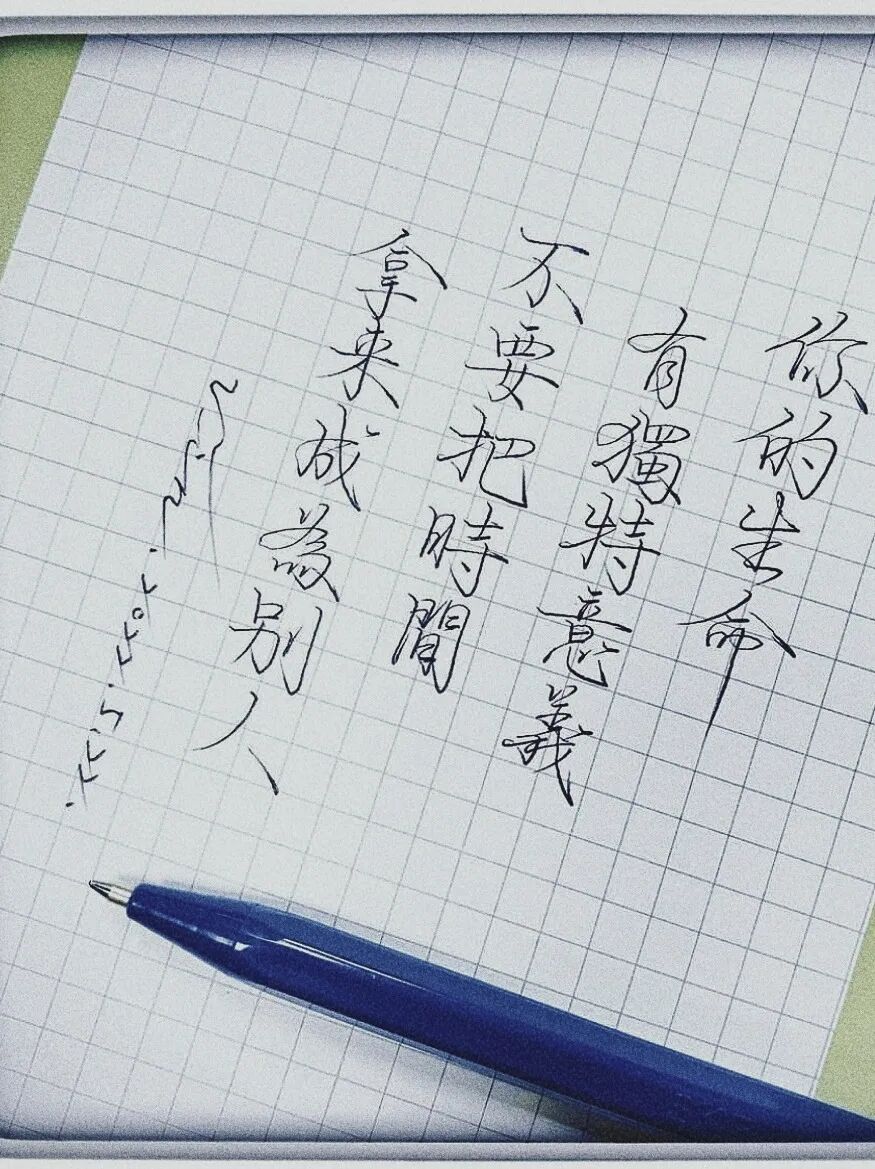 你的生命
有獨特意義
不要把時間
拿来成為别人